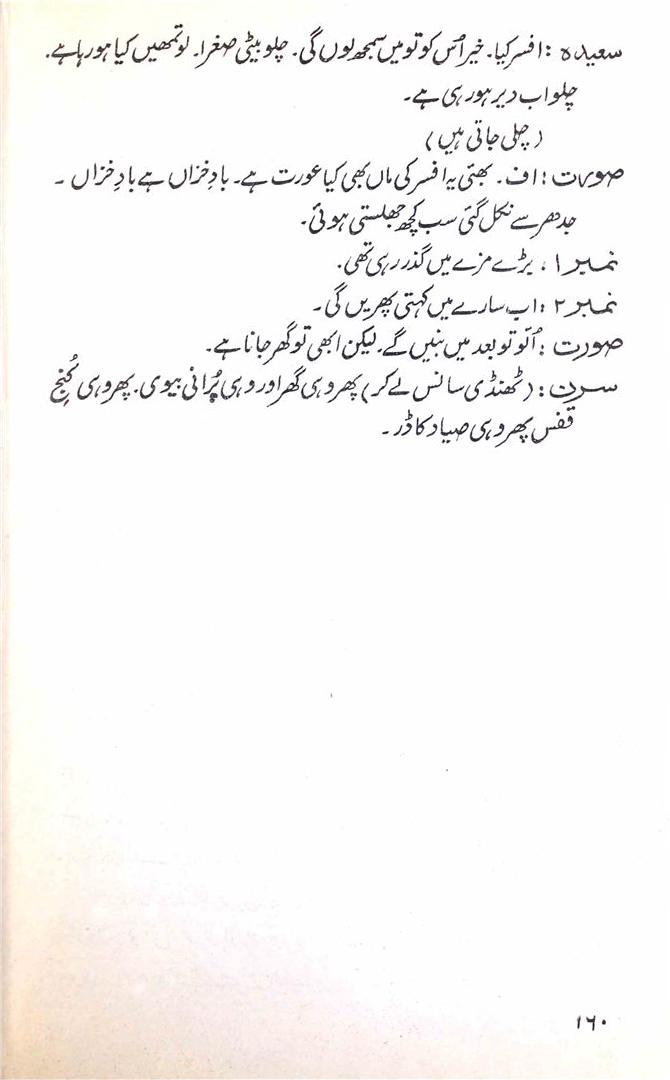 سعیدہ : افسر کیا۔ خیر اُس کو تو میں سمجھ لوں گی۔ چلو بیٹی صغرا۔ لو تمھیں کیا ہو رہا ہے۔
چلو اب دیر ہو رہی ہے۔
(چلی جاتی ہیں)
صورت : اف۔ بھئی یہ افسر کی ماں بھی کیا عورت ہے۔ بادِ خزاں ہے بادِ خزاں ۔
جدھر سے نکل گئی سب کچھ جھلستی ہوئی۔
نمبر ۱ : بڑے مزے میں گذر رہی تھی۔
نمبر ۲ : اب سارے میں کہتی پھریں گی۔
صورت : اُلّو تو بعد میں بنیں گے۔ لیکن ابھی تو گھر جانا ہے۔
سرن : (ٹھنڈی سانس لے کر) پھر وہی گھر اور وہی پُرانی بیوی۔ پھر وہی کُنجِ
قفس پھر وہی صیاد کا ڈر ۔
۱۶۰